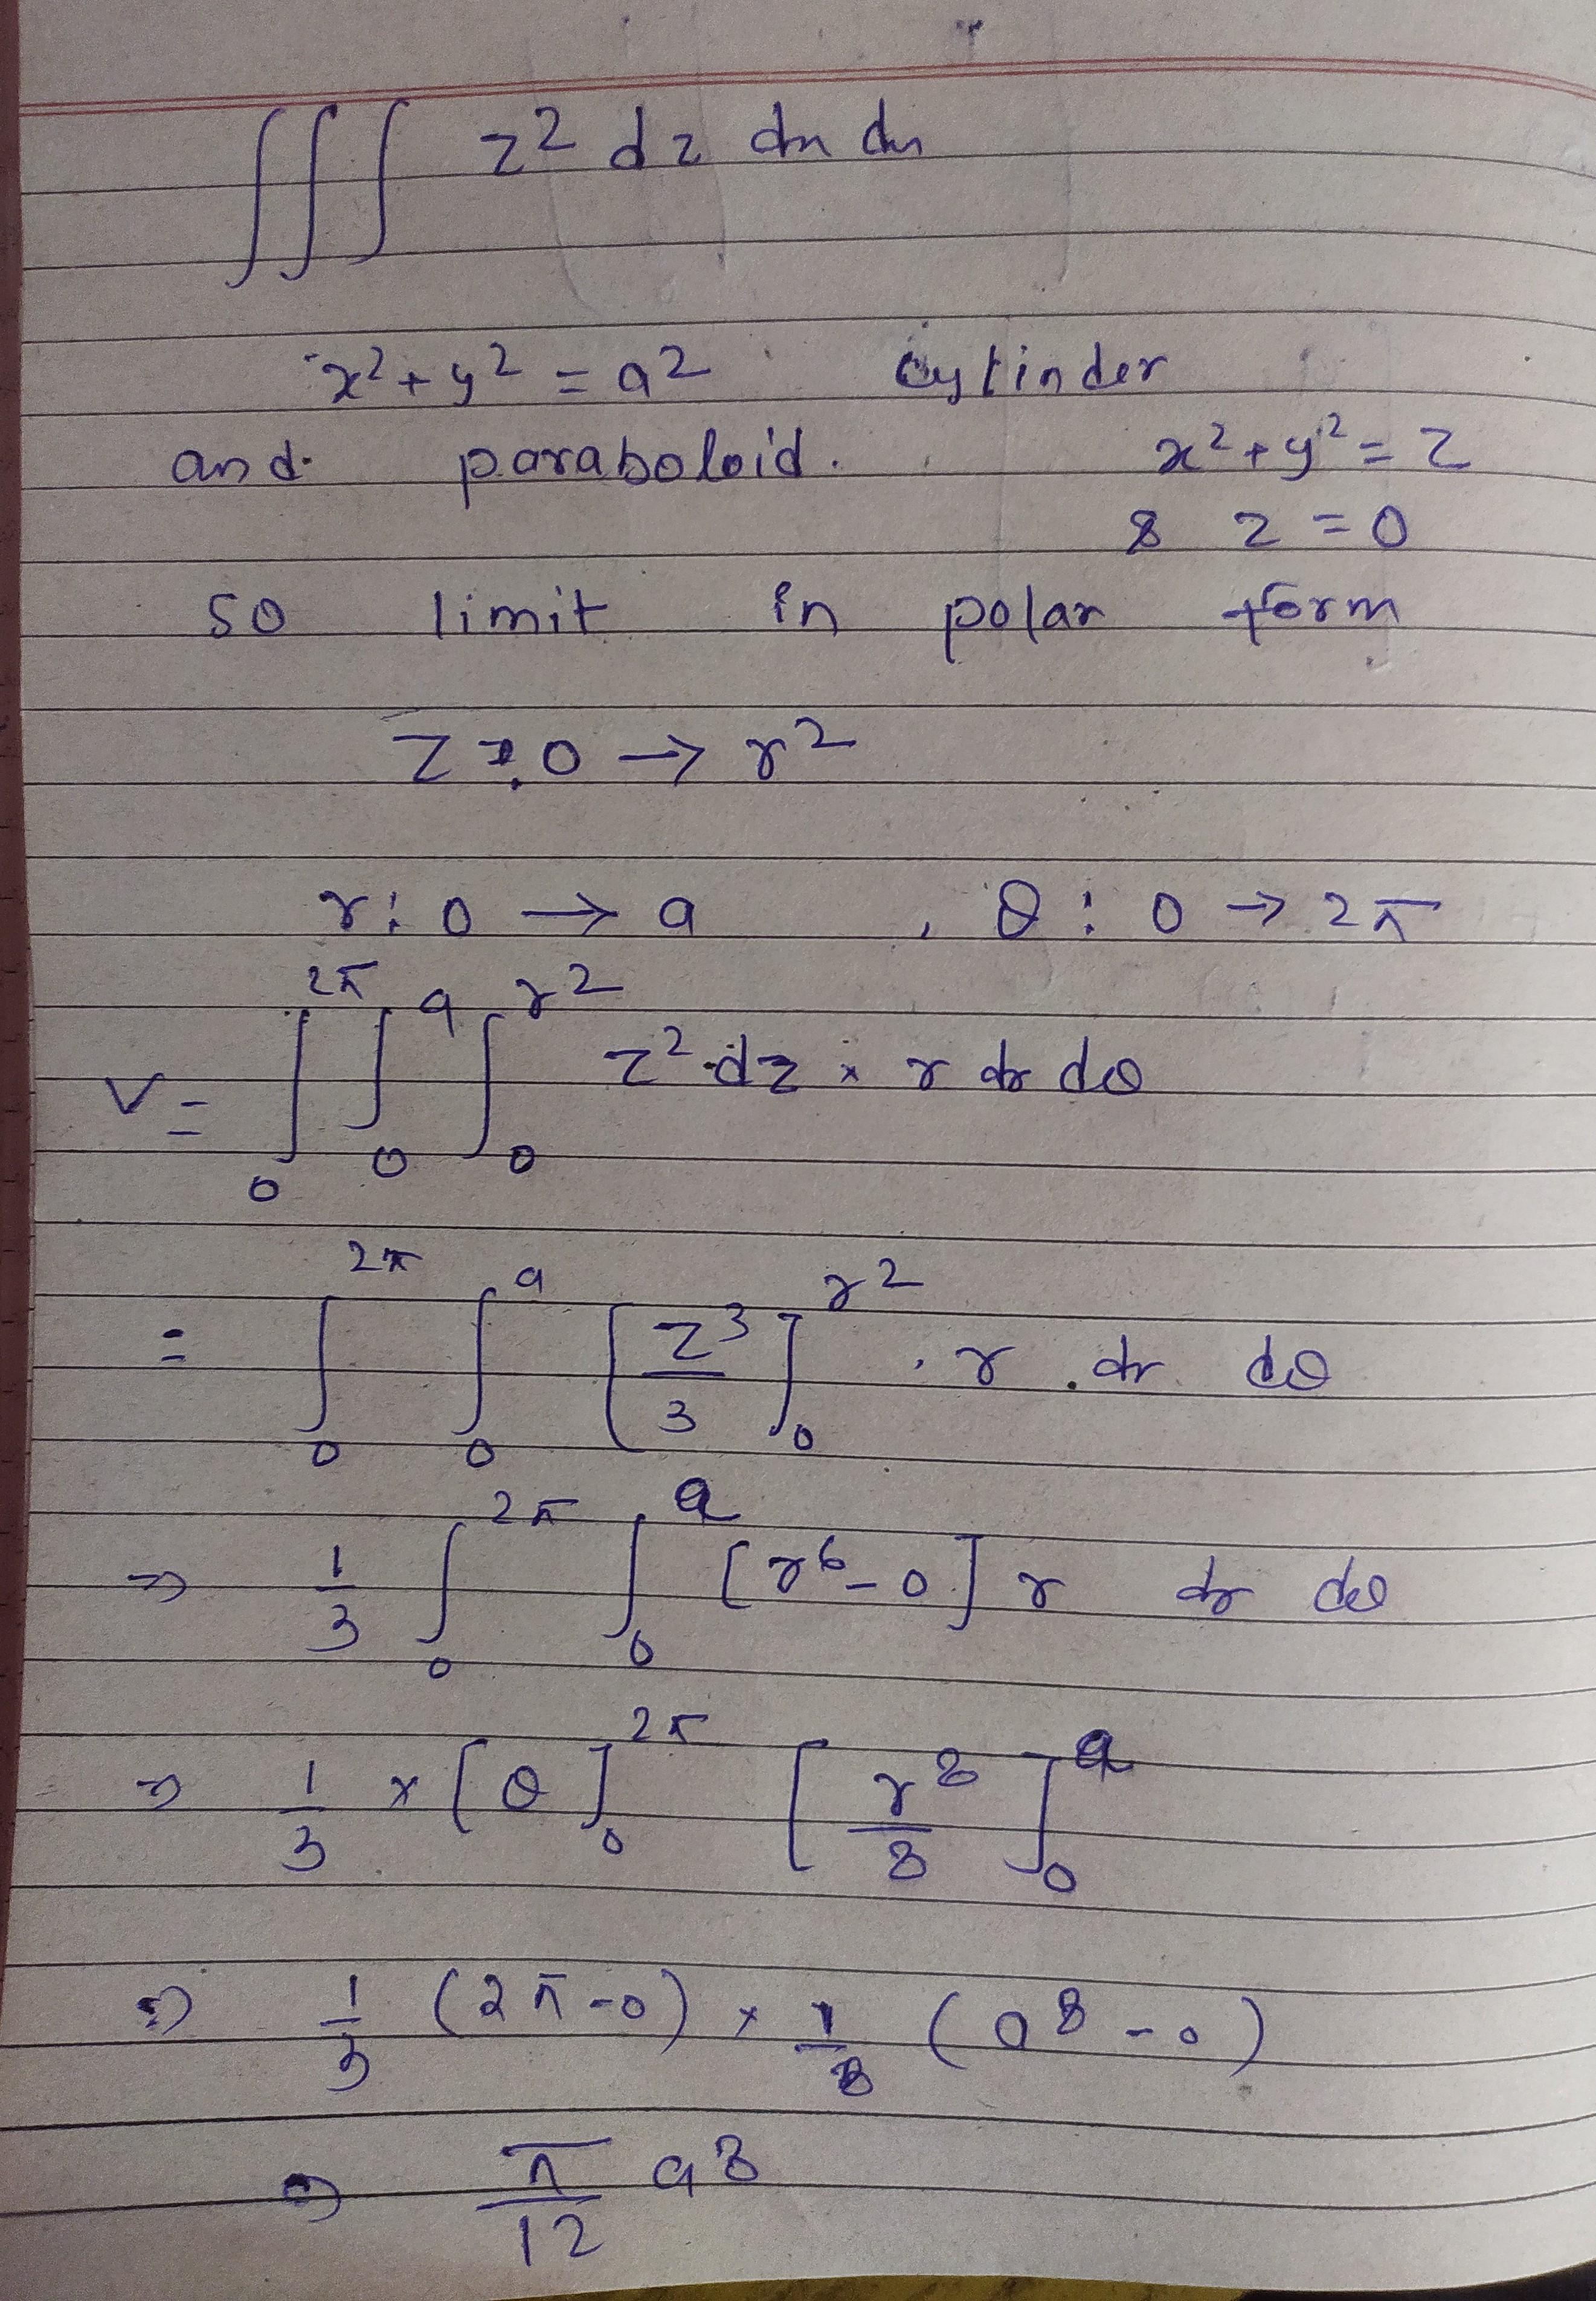 ∫∫∫ z² dz dx dx
x² + y² = a² cylinder
and paraboloid. x² + y² = z
& z = 0
so limit in polar form
z : 0 → r²
r : 0 → a , θ : 0 → 2π
V = ∫₀^2π ∫₀^a ∫₀^r² z² · dz × r dr dθ
= ∫₀^2π ∫₀^a [z³/3]₀^r² · r . dr dθ
⇒ 1/3 ∫₀^2π ∫₀^a [r⁶ - 0] r dr dθ
⇒ 1/3 × [θ]₀^2π [r⁸/8]₀^a
⇒ 1/3 (2π - 0) × 1/8 (a⁸ - 0)
⇒ π/12 a⁸